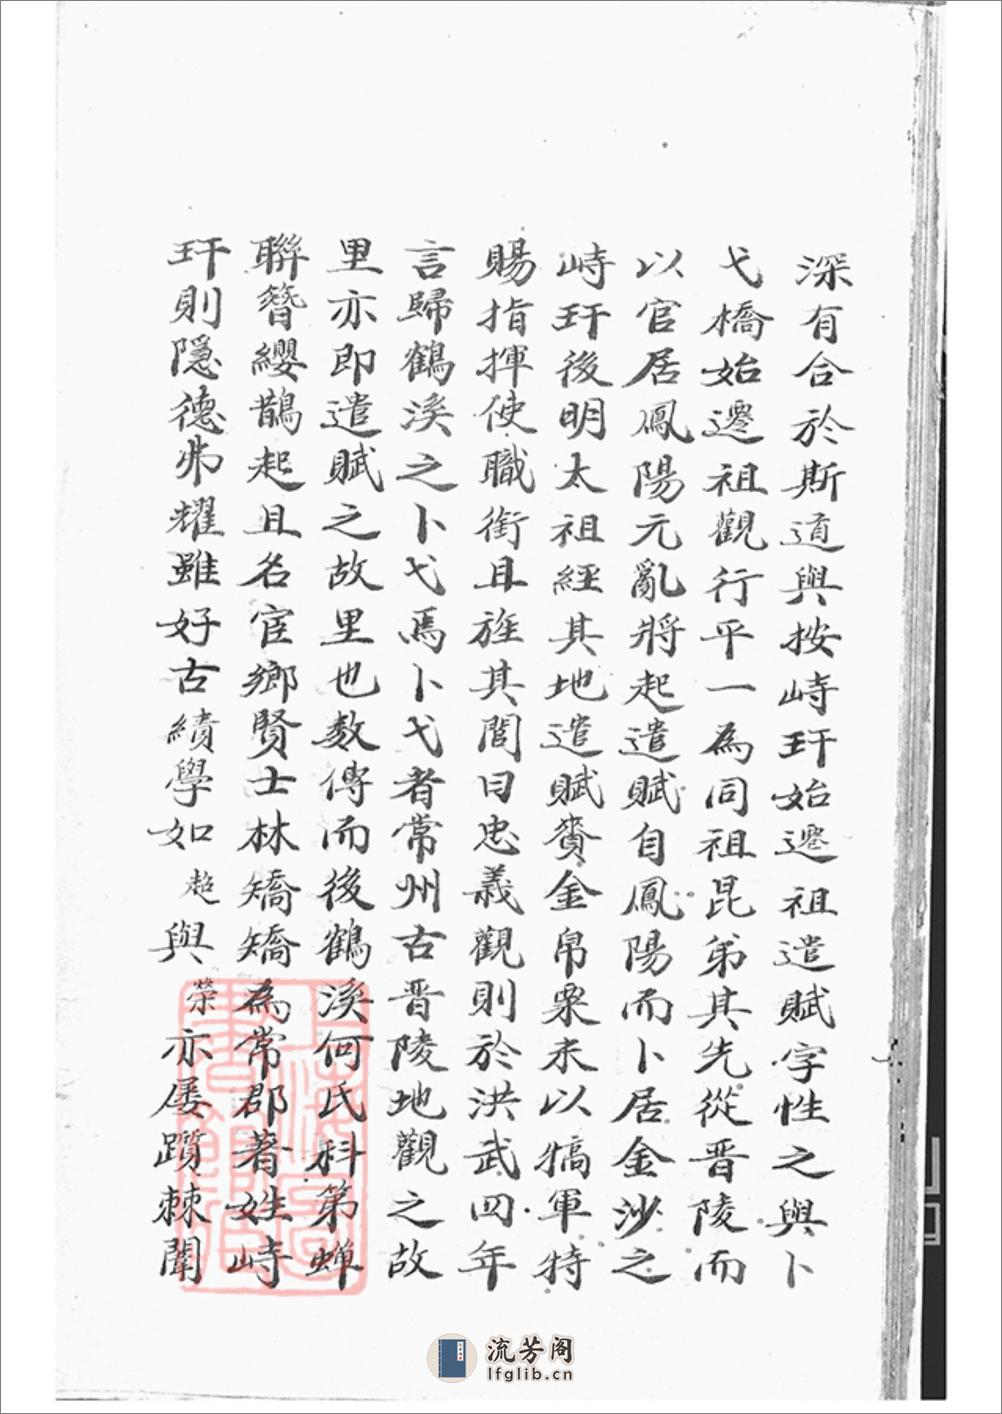 深有合於斯道與按峙玕始遷祖遣賦字性之與卜
弋橋始遷祖觀行平一為同祖昆弟其先從晋陵而
以官居鳳陽元亂將起遣賦自鳳陽而卜居金沙之
峙玕後明太祖經其地遣賦賫金帛粟米以犒軍特
賜指揮使職銜且旌其閭曰忠義觀則於洪武四年
言歸鶴溪之卜弋焉卜弋者常州古晋陵地觀之故
里亦即遣賦之故里也数傳而後鶴溪何氏科第蟬
聯簪纓鵲起且名宦鄉賢士林矯矯為常郡著姓峙
玕則隱德弗耀雖好古績學如超與榮亦屡躓棘闈
上海圖書館藏
流芳阁
lfglib.cn